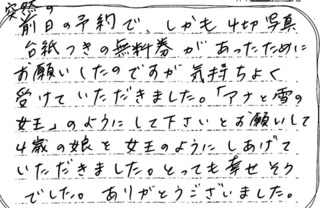 突然の
前日の予約で、しかも4切写真
台紙つきの無料券があったために
お願いしたのですが気持ちよく
受けていただきました。「アナと雪の
女王」のようにして下さいとお願いして
4歳の娘を女王のようにしあげて
いただきました。とっても幸せそう
でした。ありがとうございました。